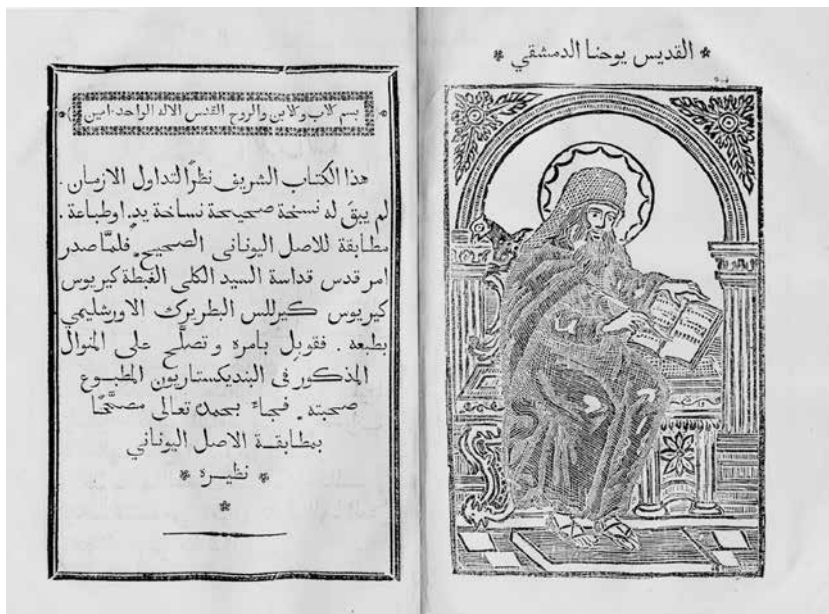 القديس يوحنا الدمشقي
بسم كلاب وكلابن والروح القدس الاله الواحد . امين
هذا الكتاب الشريف نظرًا لتداول الازمان .
لم يبقَ له نسخة صحيحة نساخة يد . اوطباعة .
مطابقة للاصل اليونانى الصحيح . فلمَّا صدر
امر قدس قداسة السيد الكلى الغبطة كيريوس
كيريوس كيرللس البطريرك الاورشليمي
بطبعه . فقوبل بامره وتصلَّح على المنوال
المذكور فى البنديكستاريون المطبوع
صحبته . فجاء بحمده تعالى مصحَّحًا
بمطابقة الاصل اليوناني
نظيره